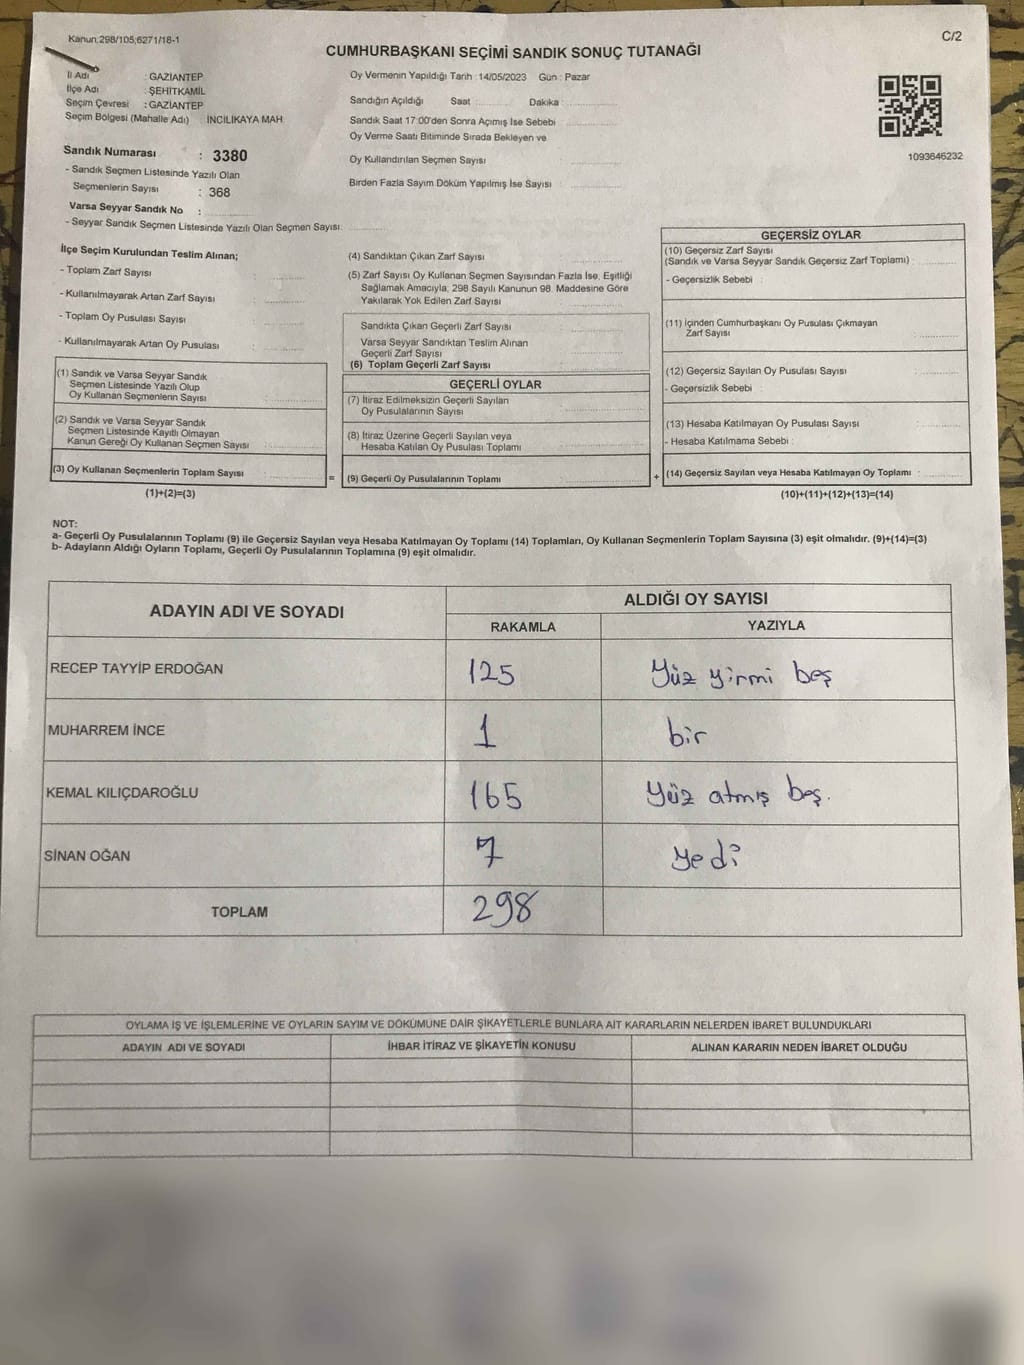 Kanun;298/105;6271/18-1
C/2
CUMHURBAŞKANI SEÇİMİ SANDIK SONUÇ TUTANAĞI
İl Adı : GAZİANTEP
İlçe Adı : ŞEHİTKAMİL
Seçim Çevresi : GAZİANTEP
Seçim Bölgesi (Mahalle Adı) İNCİLİKAYA MAH
Sandık Numarası : 3380
- Sandık Seçmen Listesinde Yazılı Olan
Seçmenlerin Sayısı : 368
Varsa Seyyar Sandık No :
- Seyyar Sandık Seçmen Listesinde Yazılı Olan Seçmen Sayısı:
Oy Vermenin Yapıldığı Tarih : 14/05/2023 Gün : Pazar
Sandığın Açıldığı Saat Dakika :
Sandık Saat 17:00'den Sonra Açımış İse Sebebi
Oy Verme Saati Bitiminde Sırada Bekleyen ve
Oy Kullandırılan Seçmen Sayısı
Birden Fazla Sayım Döküm Yapılmış İse Sayısı
1093646232
İlçe Seçim Kurulundan Teslim Alınan;
- Toplam Zarf Sayısı
- Kullanılmayarak Artan Zarf Sayısı
- Toplam Oy Pusulası Sayısı
- Kullanılmayarak Artan Oy Pusulası
(1) Sandık ve Varsa Seyyar Sandık
Seçmen Listesinde Yazılı Olup
Oy Kullanan Seçmenlerin Sayısı
(2) Sandık ve Varsa Seyyar Sandık
Seçmen Listesinde Kayıtlı Olmayan
Kanun Gereği Oy Kullanan Seçmen Sayısı
(3) Oy Kullanan Seçmenlerin Toplam Sayısı
(1)+(2)=(3)
=
(4) Sandıktan Çıkan Zarf Sayısı
(5) Zarf Sayısı Oy Kullanan Seçmen Sayısından Fazla İse, Eşitliği
Sağlamak Amacıyla, 298 Sayılı Kanunun 98. Maddesine Göre
Yakılarak Yok Edilen Zarf Sayısı
Sandıkta Çıkan Geçerli Zarf Sayısı
Varsa Seyyar Sandıktan Teslim Alınan
Geçerli Zarf Sayısı
(6) Toplam Geçerli Zarf Sayısı
GEÇERLİ OYLAR
(7) İtiraz Edilmeksizin Geçerli Sayılan
Oy Pusulalarının Sayısı
(8) İtiraz Üzerine Geçerli Sayılan veya
Hesaba Katılan Oy Pusulası Toplamı
(9) Geçerli Oy Pusulalarının Toplamı
+
GEÇERSİZ OYLAR
(10) Geçersiz Zarf Sayısı
(Sandık ve Varsa Seyyar Sandık Geçersiz Zarf Toplamı) :
- Geçersizlik Sebebi :
(11) İçinden Cumhurbaşkanı Oy Pusulası Çıkmayan
Zarf Sayısı
(12) Geçersiz Sayılan Oy Pusulası Sayısı
- Geçersizlik Sebebi :
(13) Hesaba Katılmayan Oy Pusulası Sayısı
- Hesaba Katılmama Sebebi :
(14) Geçersiz Sayılan veya Hesaba Katılmayan Oy Toplamı :
(10)+(11)+(12)+(13)=(14)
NOT:
a- Geçerli Oy Pusulalarının Toplamı (9) ile Geçersiz Sayılan veya Hesaba Katılmayan Oy Toplamı (14) Toplamları, Oy Kullanan Seçmenlerin Toplam Sayısına (3) eşit olmalıdır. (9)+(14)=(3)
b- Adayların Aldığı Oyların Toplamı, Geçerli Oy Pusulalarının Toplamına (9) eşit olmalıdır.
ADAYIN ADI VE SOYADI ALDIĞI OY SAYISI
RAKAMLA YAZIYLA
RECEP TAYYİP ERDOĞAN 125 Yüz yirmi beş
MUHARREM İNCE 1 bir
KEMAL KILIÇDAROĞLU 165 Yüz atmış beş.
SİNAN OĞAN 7 yedi
TOPLAM 298
OYLAMA İŞ VE İŞLEMLERİNE VE OYLARIN SAYIM VE DÖKÜMÜNE DAİR ŞİKAYETLERLE BUNLARA AİT KARARLARIN NELERDEN İBARET BULUNDUKLARI
ADAYIN ADI VE SOYADI İHBAR İTİRAZ VE ŞİKAYETİN KONUSU ALINAN KARARIN NEDEN İBARET OLDUĞU